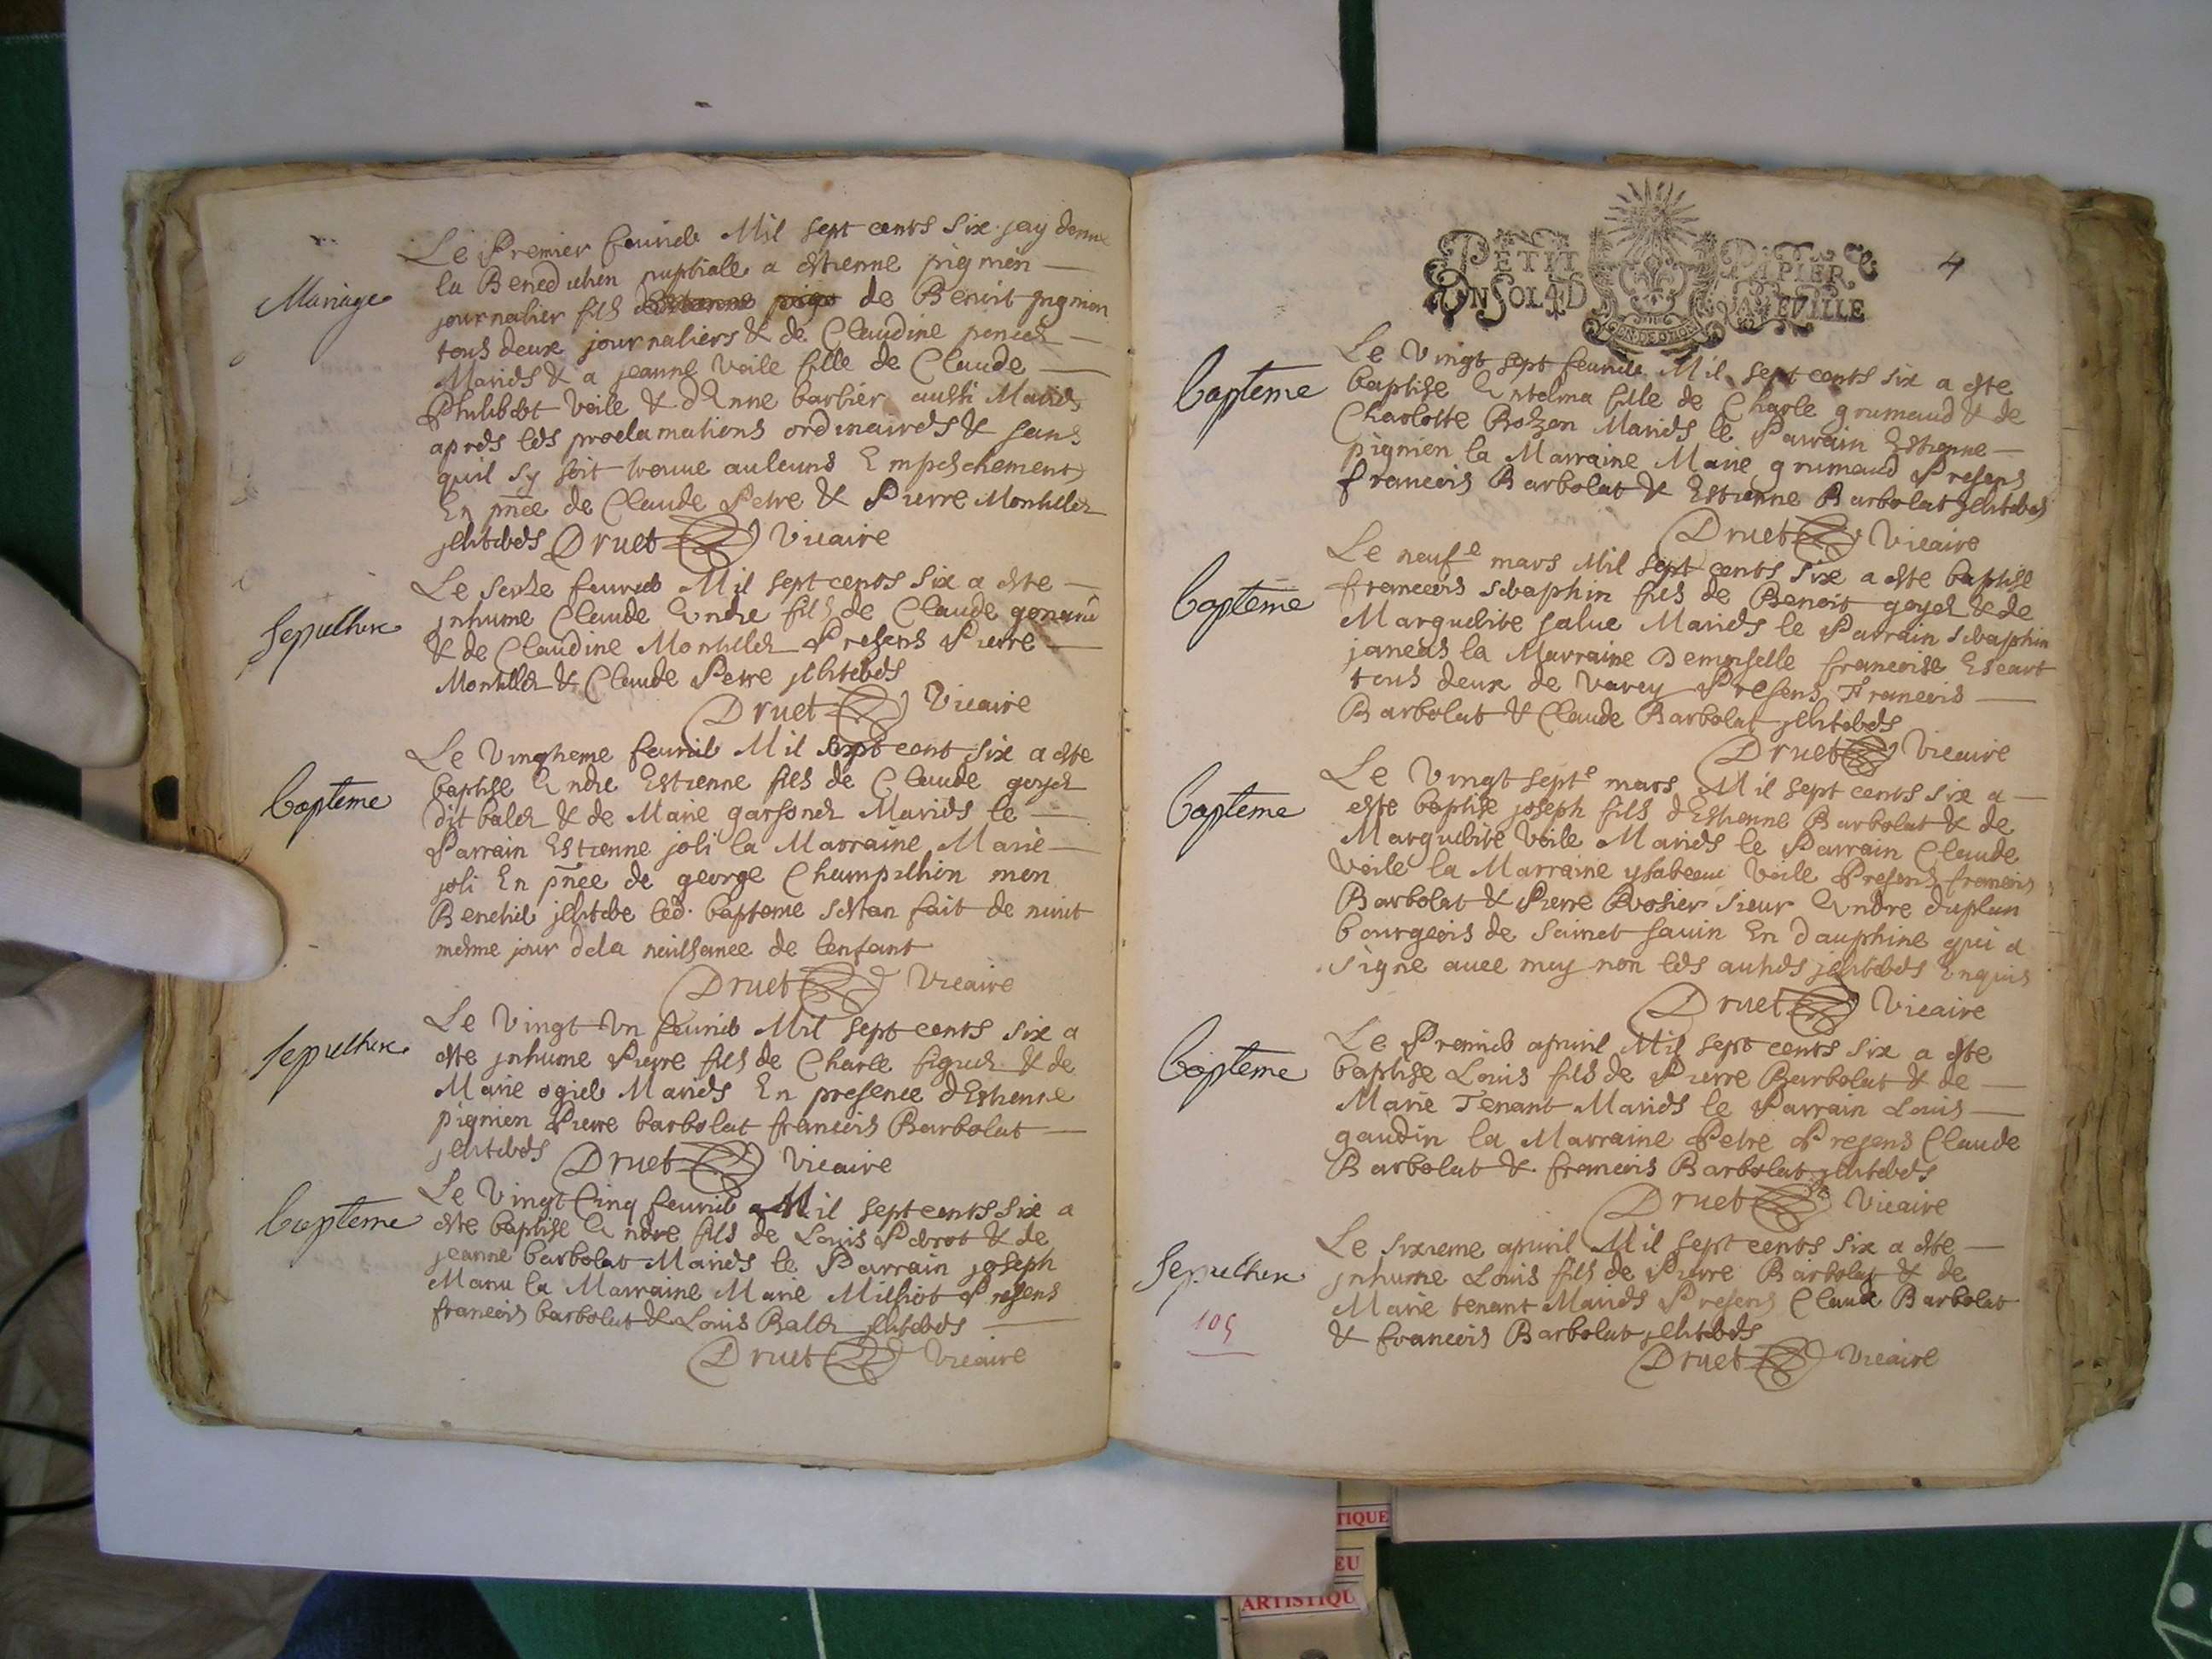 Mariage
Le Premier feurier Mil sept cents Six jay donne
la Benediction nuptiale a estienne pignien
journalier fils de Benoit pignien
tous deux journaliers & de Claudine
Maries & a jeanne Voile fille de Claude
Philibert Voile & dAnne barbier aussi Maries
apres les proclamations ordinaires & sans
quil sy soit trouue aulcuns Empeschements
En pnce de Claude Petre & Pierre Montillet
jlliteres Druet Vicaire
Sepulture
Le seize feurier Mil sept cents Six a este
jnhume Claude Andre fils de Claude
& de Claudine Montillet Presens Pierre
Montillet & Claude Petre jlliteres
Druet Vicaire
baptême
Le Vingtieme feurier Mil sept cent Six a este
baptise Andre Estienne fils de Claude goyet
dit balet & de Marie Maries le
Parrain Estienne joli la Marraine Marie
joli En pnce de george mon
jllitere led. bapteme estan fait de nuit
mesme jour dela naissance de lenfant
Druet Vicaire
Sepulture
Le Vingt Vn feurier Mil sept cents six a
este jnhume Pierre fils de Charle & de
Marie ogier Maries En presence dEstienne
pignien Pierre barbolat francois Barbolat
jlliteres Druet Vicaire
baptême
Le Vingt Cinq feurier Mil sept cents Six a
este baptise Andre fils de Louis Perrot & de
jeanne barbolat Maries le Parrain joseph
la Marraine Marie Presens
francois barbolat & Louis Balet jlliteres
Druet Vicaire
PETIT PAPIER
UN SOL 4 D LA FEUILLE
4
baptême
Le Vingt sept feurier Mil sept cents six a este
baptise Antelma fille de Charle grumaud & de
Charlotte Maries le Parrain Estienne
pignien la Marraine Marie grumaud Presens
francois Barbolat & Estienne Barbolat jlliteres
Druet Vicaire
baptême
Le neufe mars Mil sept cents Six a este baptise
francois seraphin fils de Benoit goyet & de
Marguerite salue Maries le Parrain seraphin
la Marraine Demoiselle francoise Escart
tous deux de Varey Presens Francois
Barbolat & Claude Barbolat jlliteres
Druet Vicaire
baptême
Le Vingt septe mars Mil sept cents six a
este baptise joseph fils dEstienne Barbolat & de
Marguerite Voile Maries le Parrain Claude
Voile la Marraine ysabeau Voile Presens francois
Barbolat & Pierre Rosier sieur Andre duplan
bourgeois de sainct sauin En dauphine qui a
signe auec moy non les autres jlliteres Enquis
Druet Vicaire
baptême
Le Premier apuril Mil sept cents six a este
baptise Louis fils de Pierre Barbolat & de
Marie Tenant Maries le Parrain Louis
gaudin la Marraine Petre Presens Claude
Barbolat & francois Barbolat jlliteres
Druet Vicaire
Sepulture
Le sixieme apuril Mil sept cents six a este
jnhume Louis fils de Pierre Barbolat & de
Marie tenant Maries Presens Claude Barbolat
& francois Barbolat jlliteres
Druet Vicaire
105
TIQUE
EU
ARTISTIQU